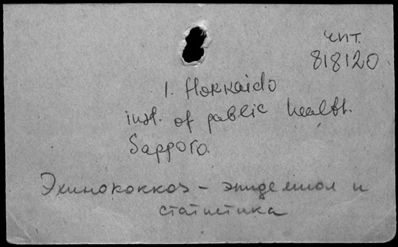 чит.
818120.
1. Hokkaido
inst. of public health.
Sapporo.
Эхинококкоз – эпидемиол и
статистика